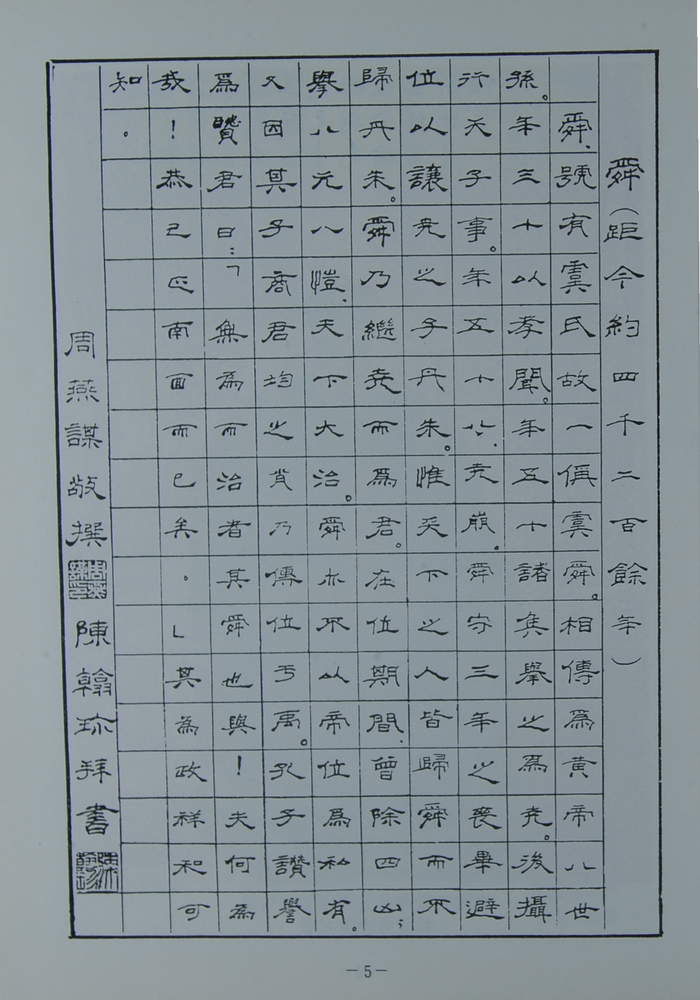 舜（距今約四千二百餘年）
舜、號有虞氏故一偁虞舜。相傳為黃帝八世
孫。年三十以孝聞。年五十諸侯舉之爲堯。後攝
行天子事。年五十八、堯崩。舜守三年之喪畢避
位以讓堯之子丹朱。惟天下之人皆歸舜而不
歸丹朱。舜乃繼堯而爲君。在位期間、曾除四凶；
舉八元八愷、天下大治。舜亦不以帝位爲私有。
又因其子商君均之肖乃傳位于禹。孔子讚譽
爲賢君曰：「無為而治者其舜也與！夫何為
哉！恭己正南面而已矣。」其為政祥和可
知。
周燕謀敬撰 陳翰珍拜書
—5—